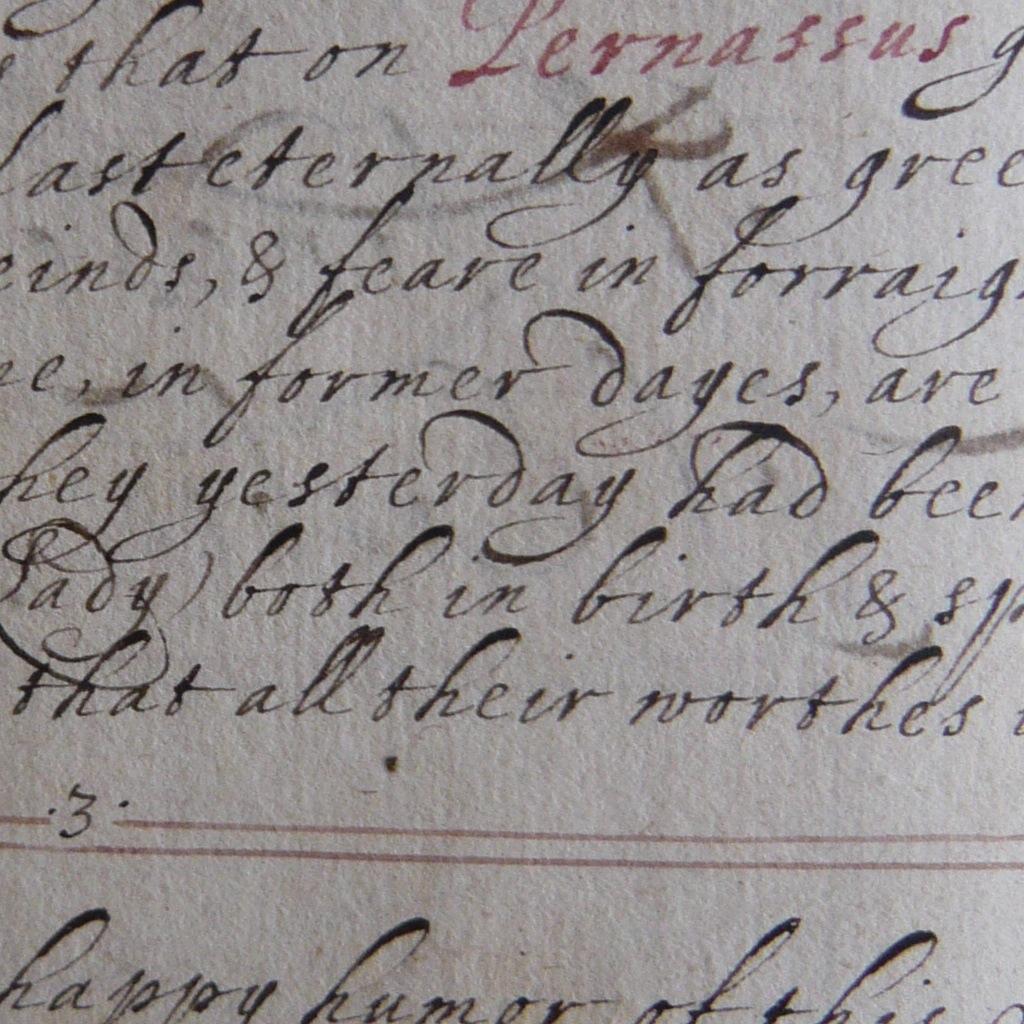 that on Pernassus g
last eternally as gree
einds, & feare in forraign
e, in former dayes, are
hey yesterday had been
Lady) both in birth & sp
that all their worthes
.3.
happy humor of this